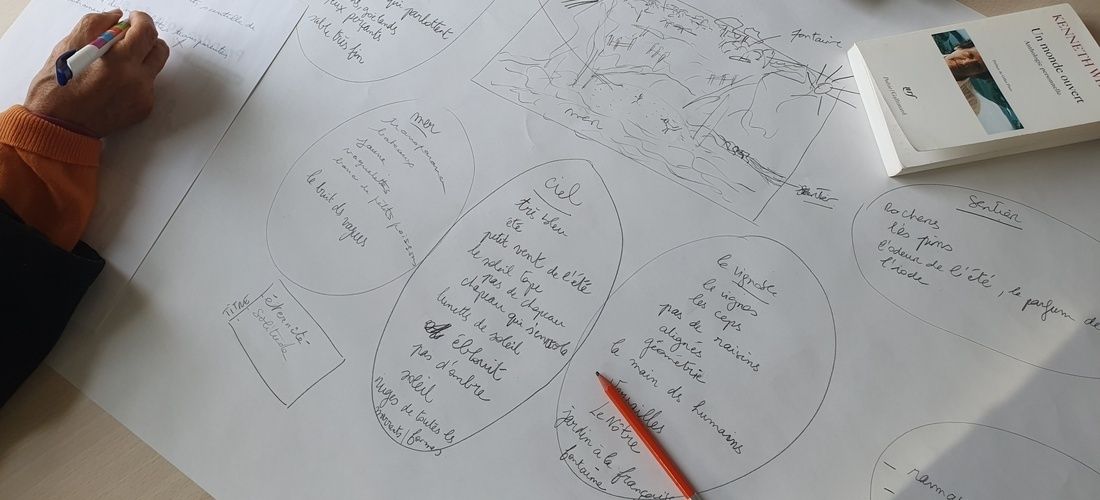 qui parlottent
goélands
aux passants
sable très fin
fontaine
mer
sentier
KENNETH WH
Un monde ouvert
Anthologie personnelle
nrf
Poésie/Gallimard
mer
transparence
bateaux
jaune
banc de petits poissons
le bruit des vagues
TITRE
éternité
solitude
ciel
très bleu
été
petit vent de l'été
le soleil tape
pas de chapeau
chapeau qui s'envole
lunettes de soleil
éblouit
pas d'ombre
soleil
nuages de toutes les
mouvements / formes
le vignoble
la vigne
les ceps
pas de raisins
alignés
géométrie
la main des humains
Versailles
Le Nôtre
jardin à la française
fontaine
sentier
Rochers
les pins
l'odeur de l'été, le parfum de
l'iode